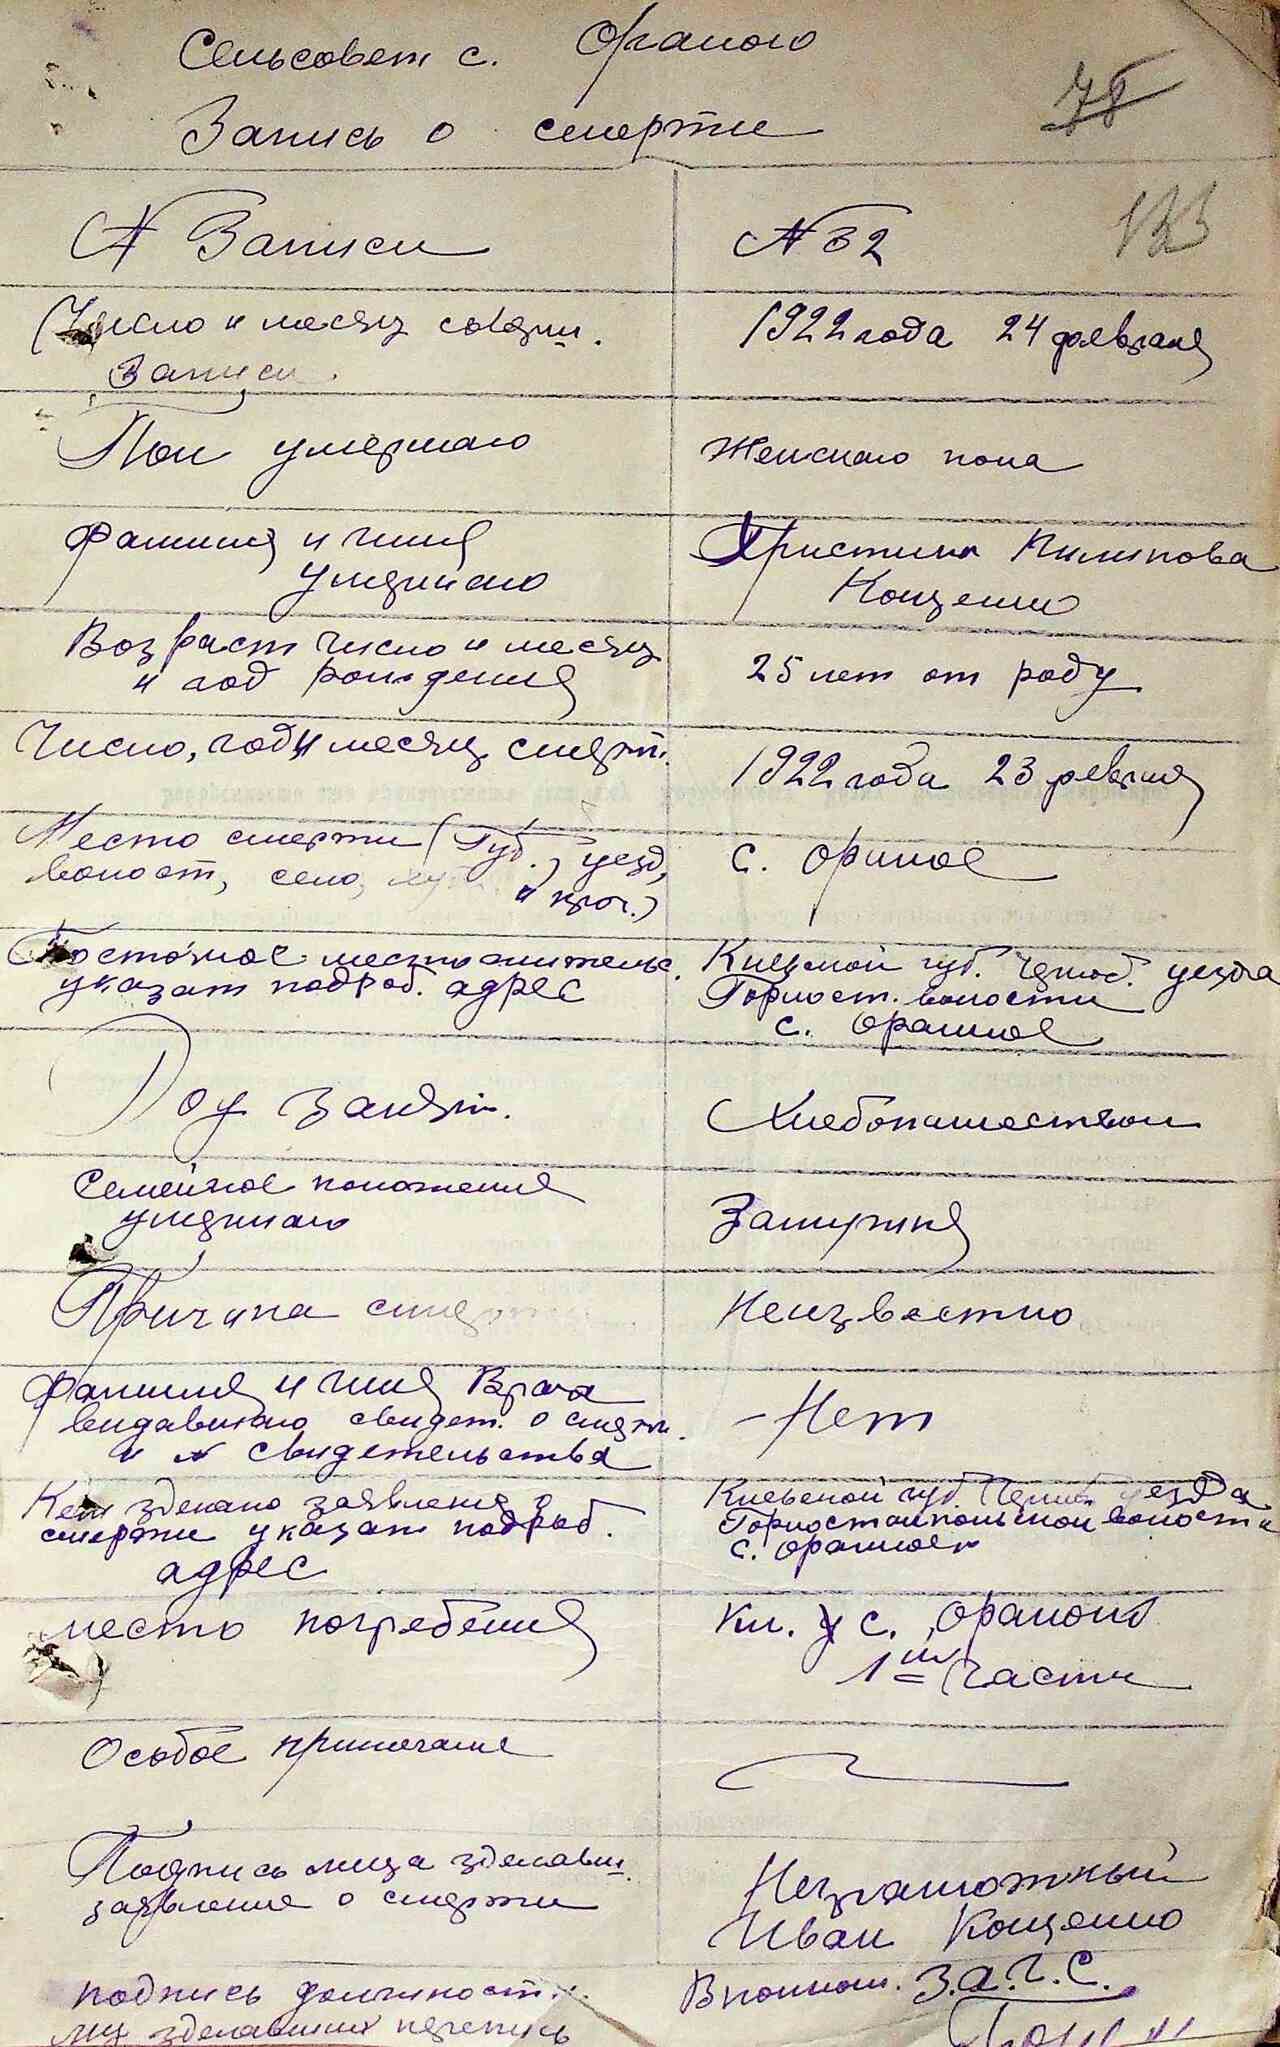 Сельсовет с. Ораного
78
Запись о смерти
133
№ Записи
№ 32
Число и месяц соверш.
Записи.
1922 года 24 февраля
Пол умершаго
Женскаго пола
Фамилия и имя
умершаго
Христина Пилипова
Кощенко
Возраст число и месяц
и год рождения
25 лет от роду
Число, год и месяц смерти.
1922 года 23 февраля
Место смерти (Губ., уезд,
волост, село, хут. и проч.)
с. Ораное
Постояное местожительс.
указат подроб. адрес
Киевской губ. Черноб. уезда
Горност. волости
с.Ораное
Род занят.
Хлебопашеством
Семейное положения
умершаго
Замужня
Причина смерт
Неизвестно
Фамилия и имя Врача
видавшаго свидет. о смерти.
и № свидетельства
– Нет
Кем зделано заявления о
смерти указат подроб.
адрес
Киевской губ. Черноб уезда
Горностайпольской волости
с. Ораное
место погребения
Кл. у с. Ораном
1й части
Особое примечание
Подпись лица зделавш.
заявление о смерти
Неграмотный
Иван Кощенко
подпись должност.
зделавших перепись
В помощ. З.А.Г.С.